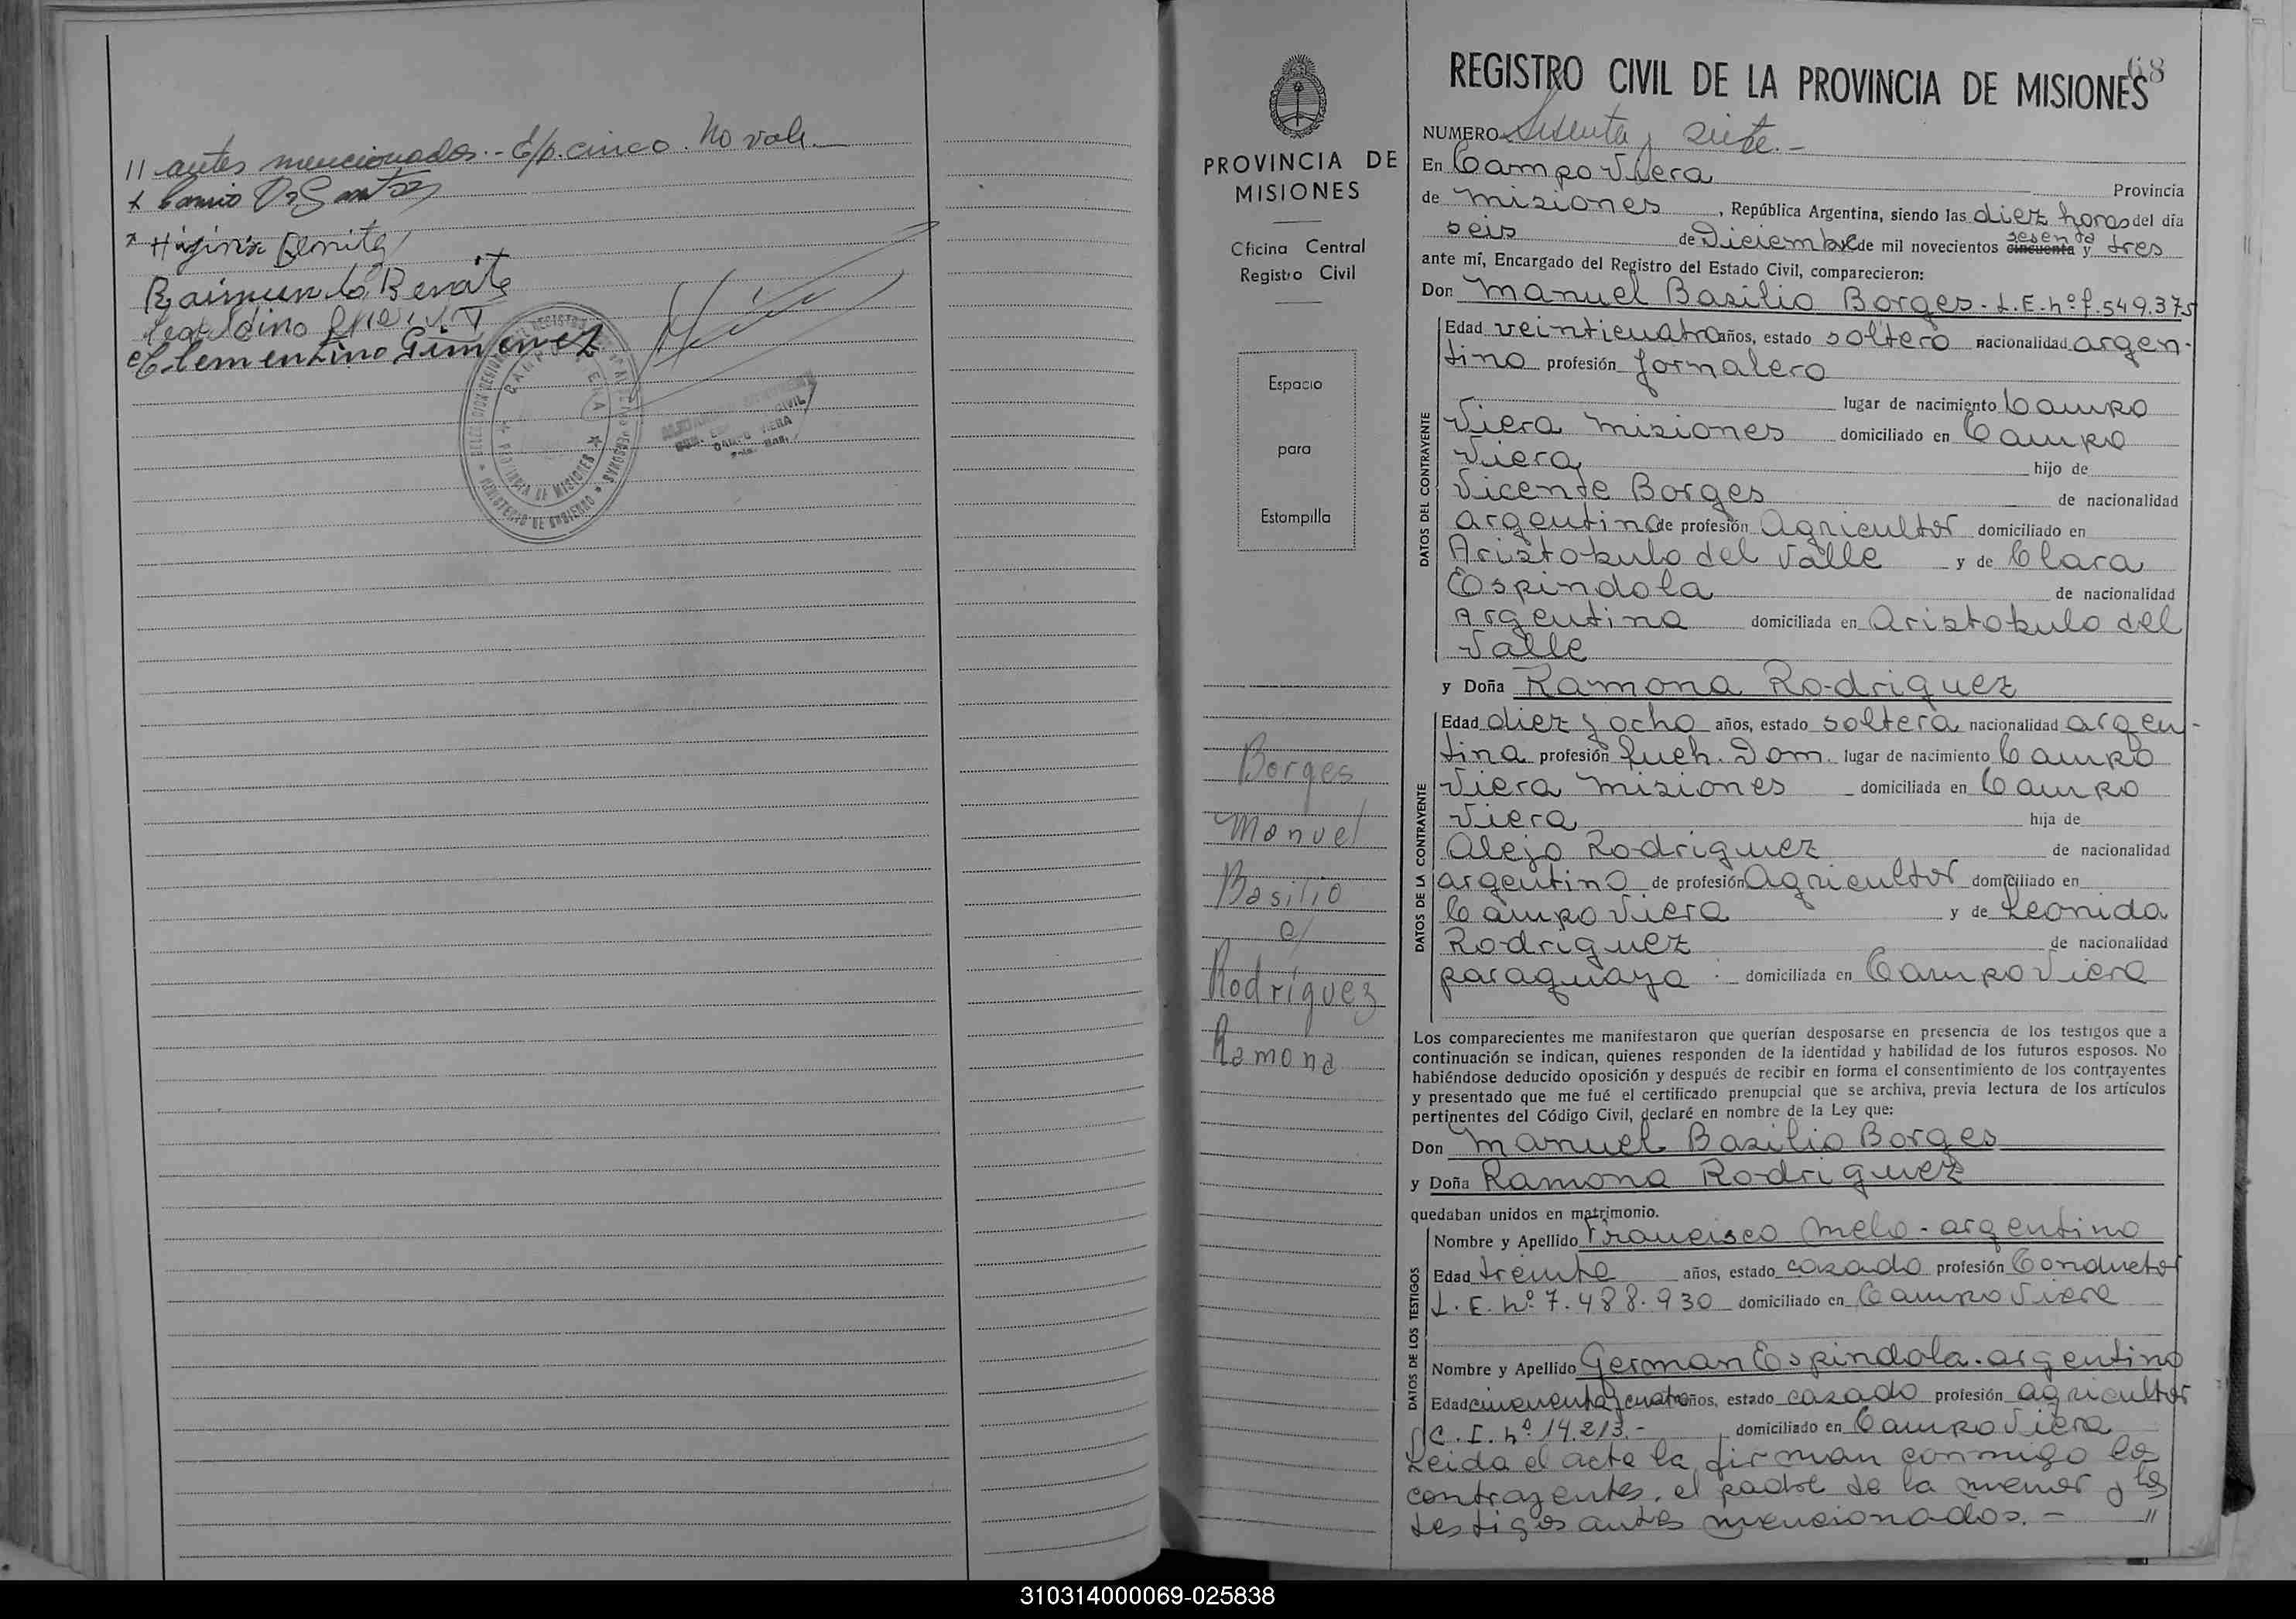 // antes mencionados.- E/p. cinco. No vale.
x Ramio Dos Santos
x Higinia Benitez
Raimundo Benite
Clementino Gimenez
CAMPO VIERA
PROVINCIA DE MISIONES
MINISTERIO DE GOBIERNO
CIVIL
CAMPO VIERA
68
REGISTRO CIVIL DE LA PROVINCIA DE MISIONES
NUMERO Sesenta y siete.-
En Campo Viera Provincia
de Misiones, República Argentina, siendo las diez horas del día
seis de Diciembre de mil novecientos cincuenta sesenta y tres
ante mí, Encargado del Registro del Estado Civil, comparecieron:
Don Manuel Basilio Borges. L.E. nº 7.549.375
Edad veinticuatro años, estado soltero nacionalidad argen-
tino profesión Jornalero
lugar de nacimiento Campo
Viera Misiones domiciliado en Campo
Viera hijo de
Vicente Borges de nacionalidad
argentina de profesión Agricultor domiciliado en
Aristobulo del Valle y de Clara
Espindola de nacionalidad
Argentina domiciliada en Aristobulo del
Valle
y Doña Ramona Rodriguez
Edad diez y ocho años, estado soltera nacionalidad argen-
tina profesión Queh. Dom. lugar de nacimiento Campo
Viera Misiones domiciliada en Campo
Viera hija de
Alejo Rodriguez de nacionalidad
argentino de profesión Agricultor domiciliado en
Campo Viera y de Leonida
Rodriguez de nacionalidad
paraguaya domiciliada en Campo Viera
Los comparecientes me manifestaron que querían desposarse en presencia de los testigos que a
continuación se indican, quienes responden de la identidad y habilidad de los futuros esposos. No
habiéndose deducido oposición y después de recibir en forma el consentimiento de los contrayentes
y presentado que me fué el certificado prenupcial que se archiva, previa lectura de los artículos
pertinentes del Código Civil, declaré en nombre de la Ley que:
Don Manuel Basilio Borges
y Doña Ramona Rodriguez
quedaban unidos en matrimonio.
Nombre y Apellido Francisco Melo - argentino
Edad treinta años, estado casado profesión Conductor
L.E. nº 7.488.930 domiciliado en Campo Viera
Nombre y Apellido German Espindola. argentino
Edad cincuenta y cuatro años, estado casado profesión agricultor
C.I. nº 14.213.- domiciliado en Campo Viera
Leida el acta la firman conmigo los
contrayentes, el padre de la menor y los
testigos antes mencionados. - //
DATOS DEL CONTRAYENTE
DATOS DE LA CONTRAYENTE
DATOS DE LOS TESTIGOS
PROVINCIA DE
MISIONES
Oficina Central
Registro Civil
Espacio
para
Estampilla
Borges
Manuel
Basilio
c/
Rodríguez
Ramona
310314000069-025838